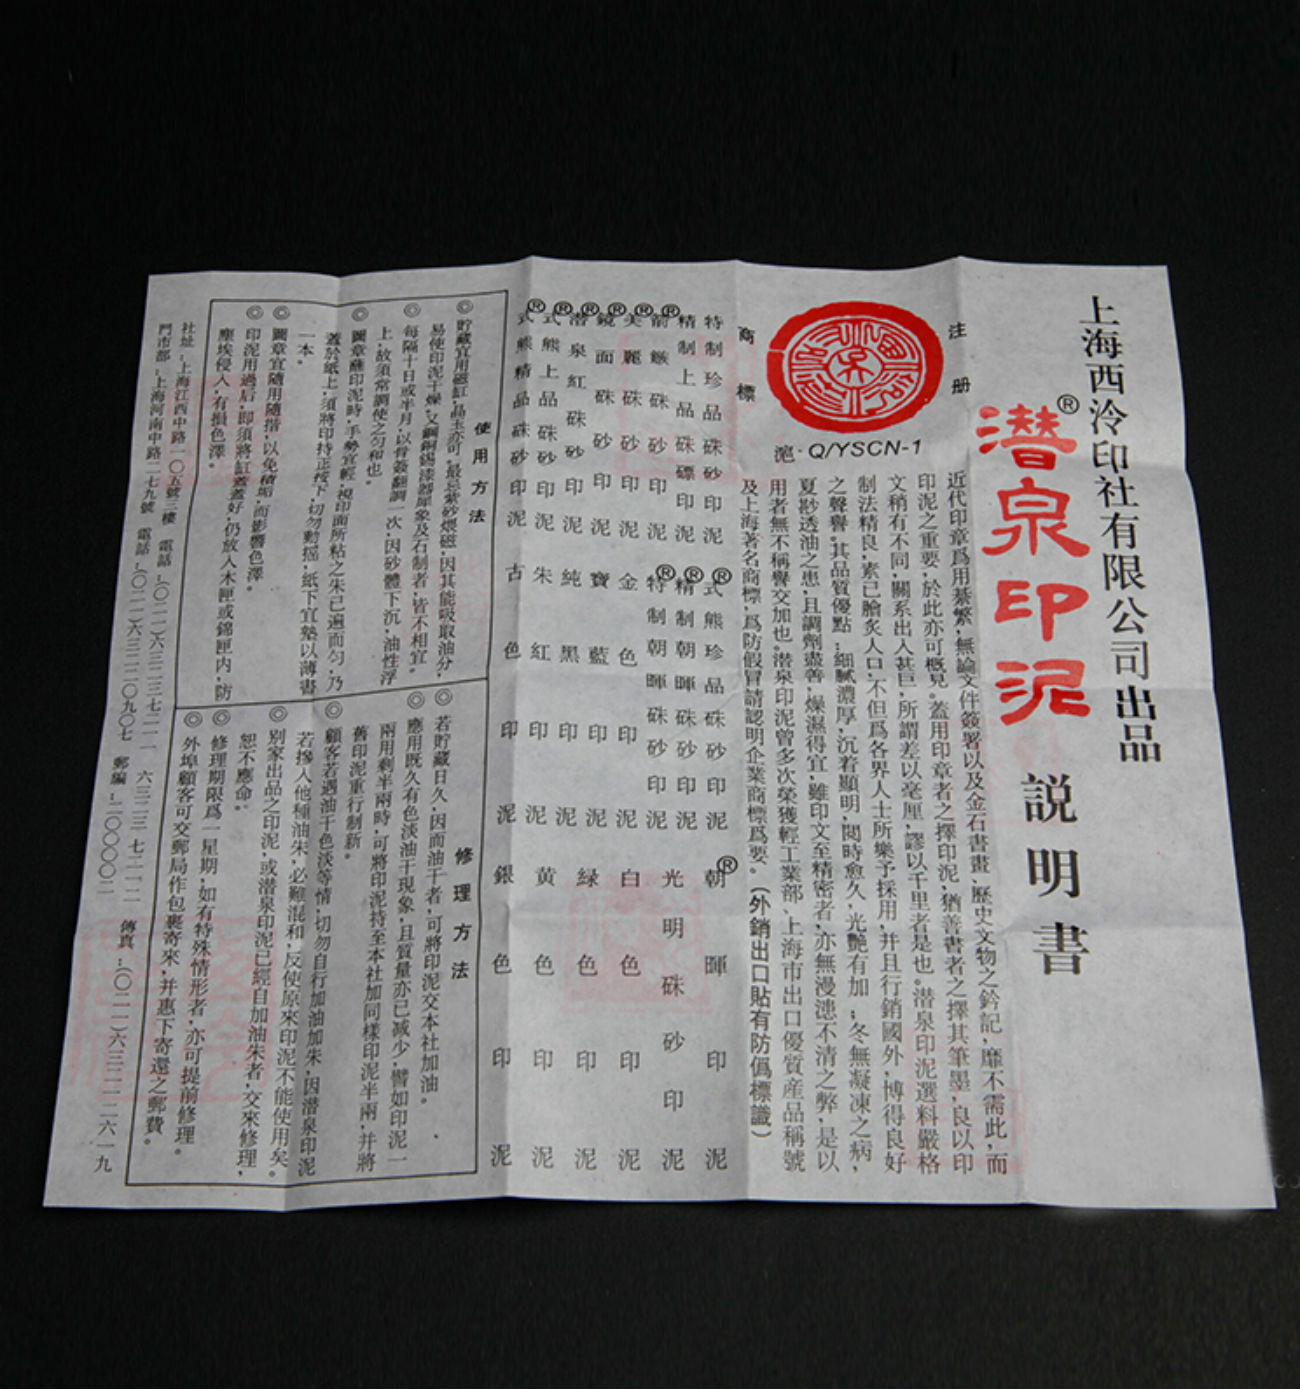 上海西泠印社有限公司出品
潜泉印泥®
説明書
注册
商標
滬·Q/YSCN-1
近代印章爲用綦繁,無論文件簽署以及金石書畫、歷史文物之鈐記,靡不需此,而
印泥之重要,於此亦可概見。蓋用印章者之擇印泥,猶善書者之擇其筆墨,良以印
文稍有不同,關系出入甚巨,所謂差以毫厘,謬以千里者是也。潜泉印泥選料嚴格
制法精良,素已膾炙人口,不但爲各界人士所樂予採用,并且行銷國外,博得良好
之聲譽。其品質優點:細膩濃厚,沉着顯明,閱時愈久,光艷有加;冬無凝凍之病,
夏尠透油之患,且調劑盡善,燥濕得宜,雖印文至精密者,亦無漫漶不清之弊,是以
用者無不稱譽交加也。潜泉印泥曾多次榮獲輕工業部、上海市出口優質産品稱號
及上海著名商標,爲防假冒請認明企業商標爲要。(外銷出口貼有防僞標識)
特制珍品硃砂印泥
精制上品硃磦印泥
®箭鏃硃砂印泥
®美麗硃砂印泥
®鏡面硃砂印泥
®潜泉紅硃砂印泥
®式熊上品硃砂印泥
®式熊精品硃砂印泥
®式熊珍品硃砂印泥
®精制朝暉硃砂印泥
®特制朝暉硃砂印泥
金色印泥
寶藍印泥
純黑印泥
朱紅印泥
古色印泥
®朝暉印泥
光明硃砂印泥
白色印泥
緑色印泥
黄色印泥
銀色印泥
使用方法
◎貯藏宜用磁缸,晶玉亦可。最忌紫砂煨磁,因其能吸取油分,
易使印泥干燥,又鋼銅錫漆器犀象及石制者,皆不相宜。
◎每隔十日或半月,以骨簽翻調一次,因砂體下沉,油性浮
上,故須常調使之匀和也。
◎圖章蘸印泥時,手勢宜輕,視印面所粘之朱已遍而匀,乃
蓋於紙上,須將印持正按下,切勿動摇,紙下宜墊以薄書
一本。
◎圖章宜隨用隨揩,以免積垢,而影響色澤。
◎印泥用過后,即須將缸蓋蓋好,仍放入木匣或錦匣内,防
塵埃侵入,有損色澤。
修理方法
◎若貯藏日久,因而油干者,可將印泥交本社加油。
◎應用既久有色淡油干現象,且質量亦已减少,譬如印泥一
兩用剩半兩時,可將印泥持至本社加同樣印泥半兩,并將
舊印泥重行制新。
◎顧客若遇油干色淡等情,切勿自行加油加朱,因潜泉印泥
若摻入他種油朱,必難混和,反使原來印泥不能使用矣。
◎别家出品之印泥,或潜泉印泥已經自加油朱者,交來修理,
恕不應命。
◎修理期限爲一星期,如有特殊情形者,亦可提前修理。
◎外埠顧客可交郵局作包裹寄來,并惠下寄還之郵費。
社址:上海江西中路一〇五號三樓 電話:(〇二一)六三二一三七二一、六三二三七二一二 傳真:(〇二一)六三二一二六一九
門市部:上海河南中路二七九號 電話:(〇二一)六三二二〇九〇七 郵編:二〇〇〇〇二